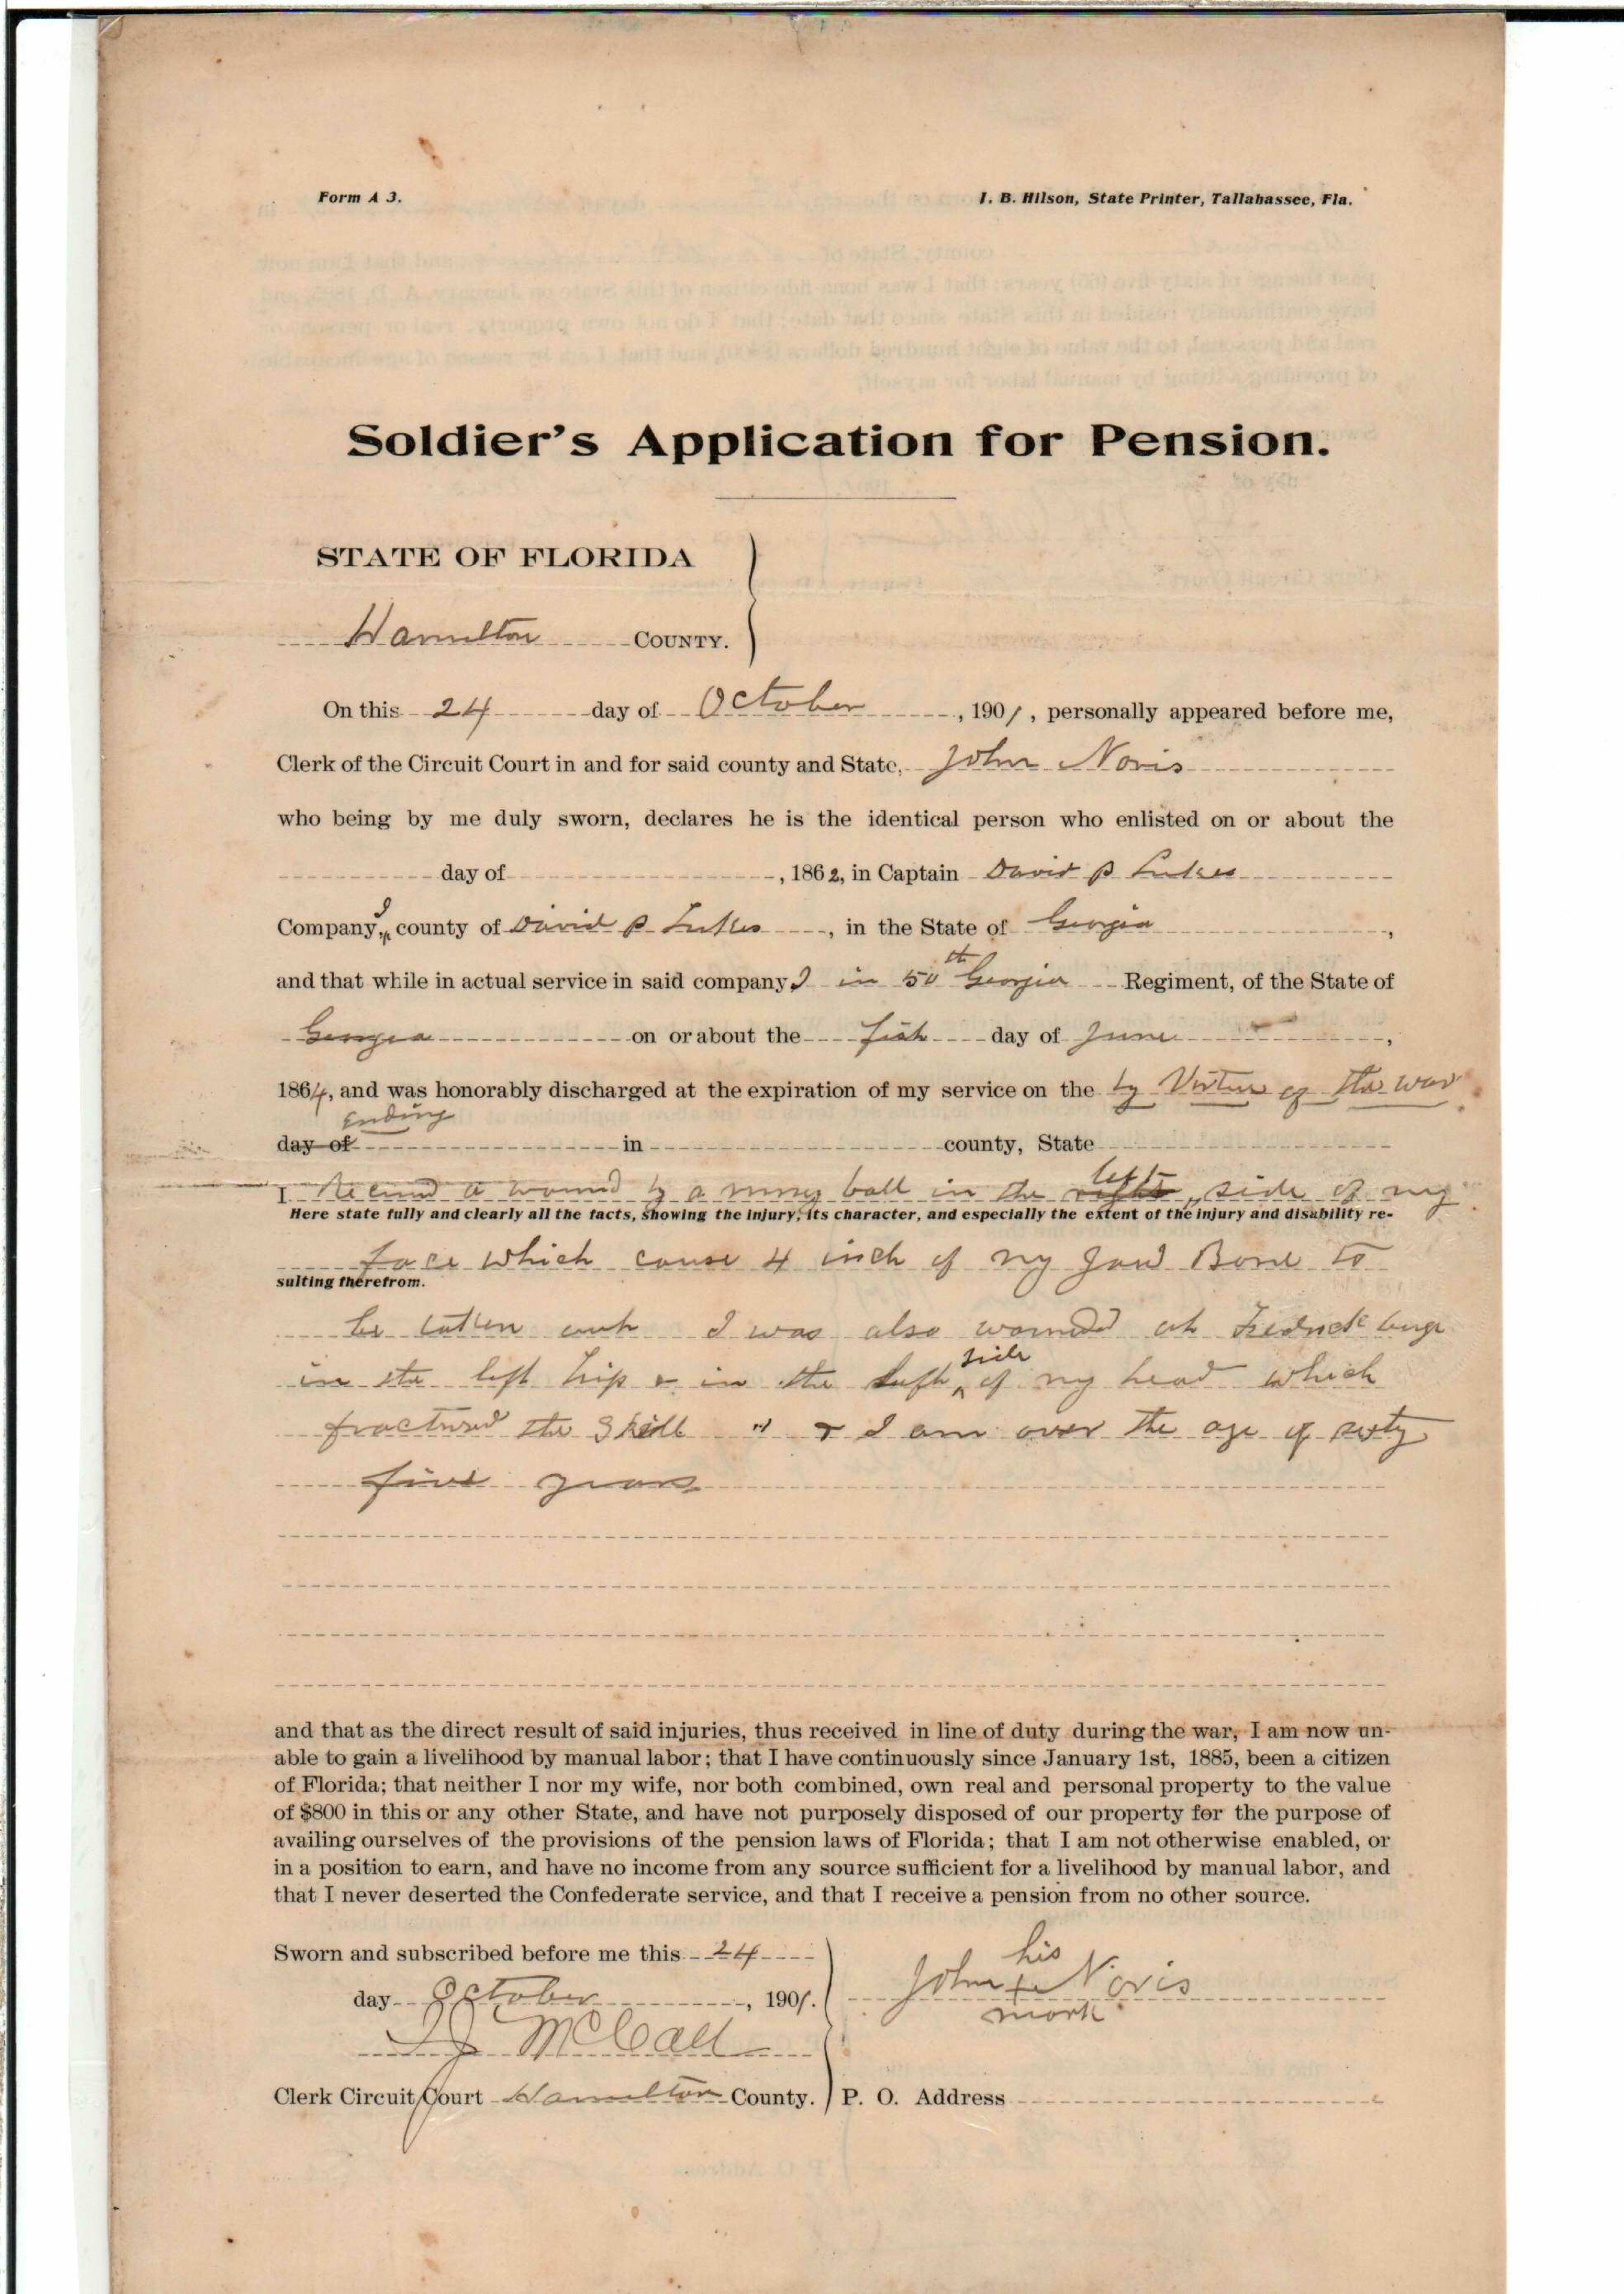 Form A 3. I. B. Hilson, State Printer, Tallahassee, Fla.
Soldier's Application for Pension.
STATE OF FLORIDA
Hamilton COUNTY.
On this 24 day of October, 1901, personally appeared before me,
Clerk of the Circuit Court in and for said county and State, John Noris
who being by me duly sworn, declares he is the identical person who enlisted on or about the
day of , 1862, in Captain David P
Company I, county of David P , in the State of Georgia,
th
and that while in actual service in said company I in 50 Georgia Regiment, of the State of
Georgia on or about the day of June,
1864, and was honorably discharged at the expiration of my service on the by Virtue of the war
Ending
day of in county, State
left
I Recived a wound by a miny ball in the right side of my
Here state fully and clearly all the facts, showing the injury, its character, and especially the extent of the injury and disability re-
face which cause 4 inch of my Jaw Bone to
sulting therefrom.
be taken out I was also wounded at
side
in the left hip & in the left of my head which
fractured the Skull & I am over the age of sixty
five years
and that as the direct result of said injuries, thus received in line of duty during the war, I am now un-
able to gain a livelihood by manual labor; that I have continuously since January 1st, 1885, been a citizen
of Florida; that neither I nor my wife, nor both combined, own real and personal property to the value
of $800 in this or any other State, and have not purposely disposed of our property for the purpose of
availing ourselves of the provisions of the pension laws of Florida; that I am not otherwise enabled, or
in a position to earn, and have no income from any source sufficient for a livelihood by manual labor, and
that I never deserted the Confederate service, and that I receive a pension from no other source.
Sworn and subscribed before me this 24
his
day October, 1901. John + Noris
mark
McCall
Clerk Circuit Court Hamilton County. P. O. Address